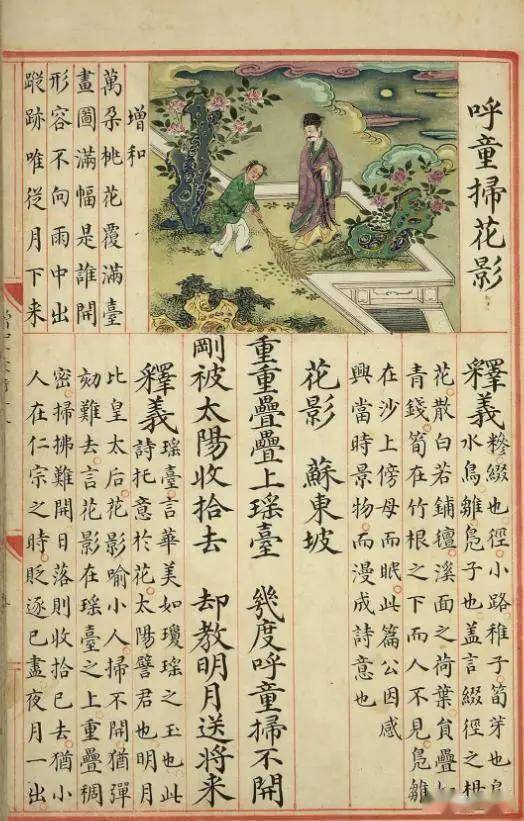 呼童掃花影
增和
萬朵桃花覆滿臺
畫圖滿幅是誰開
形容不向雨中出
蹤跡唯從月下来
釋義 糝綴也徑小路稚子筍芽也凫
水鳥雛凫子也盖言綴徑之
花散白若鋪氊溪面之荷葉貟疊如
青錢筍在竹根之下而人不見凫雛
在沙上傍母而眠此篇公因感
興當時景物而漫成詩意也
花影 蘇東坡
重重疊疊上瑶臺 幾度呼童掃不開
剛被太陽收拾去 却教明月送將来
釋義 瑶臺言華美如瓊瑶之玉也此
詩托意於花太陽譬君也明月
比皇太后花影喻小人掃不開猶彈
劾難去言花影在瑶臺之上重疊稠
密掃拂難開日落則收拾已去猶小
人在仁宗之時貶逐已盡夜月一出